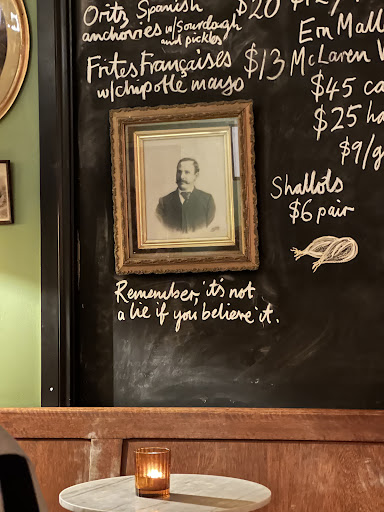 Oritz Spanish $20
anchovies w/Sourdough
and pickles
Frites Françaises $13
w/chipotle mayo
Em Mall
McLaren V
$45 ca
$25 ha
$9/g
Shallots
$6 pair
Remember, it's not
a lie if you believe it.